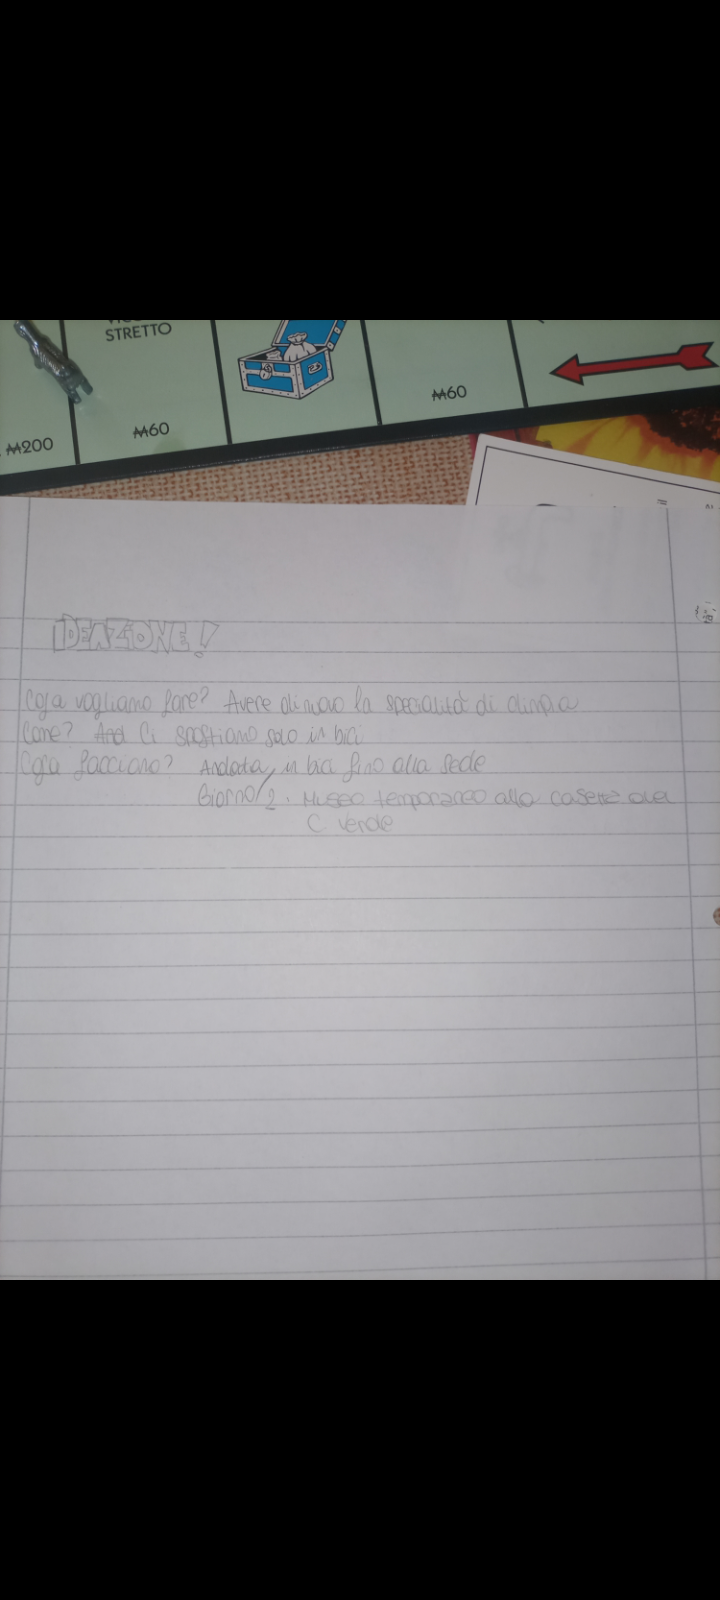 STRETTO
₩200
₩60
₩60
IDEAZIONE!
Cosa vogliamo fare? Avere di nuovo la specialità di olimpia
Come? And Ci spostiamo solo in bici
Cosa facciamo? Andata, in bici fino alla sede
Giorno/2. Museo temporaneo alla casetta del
C verde